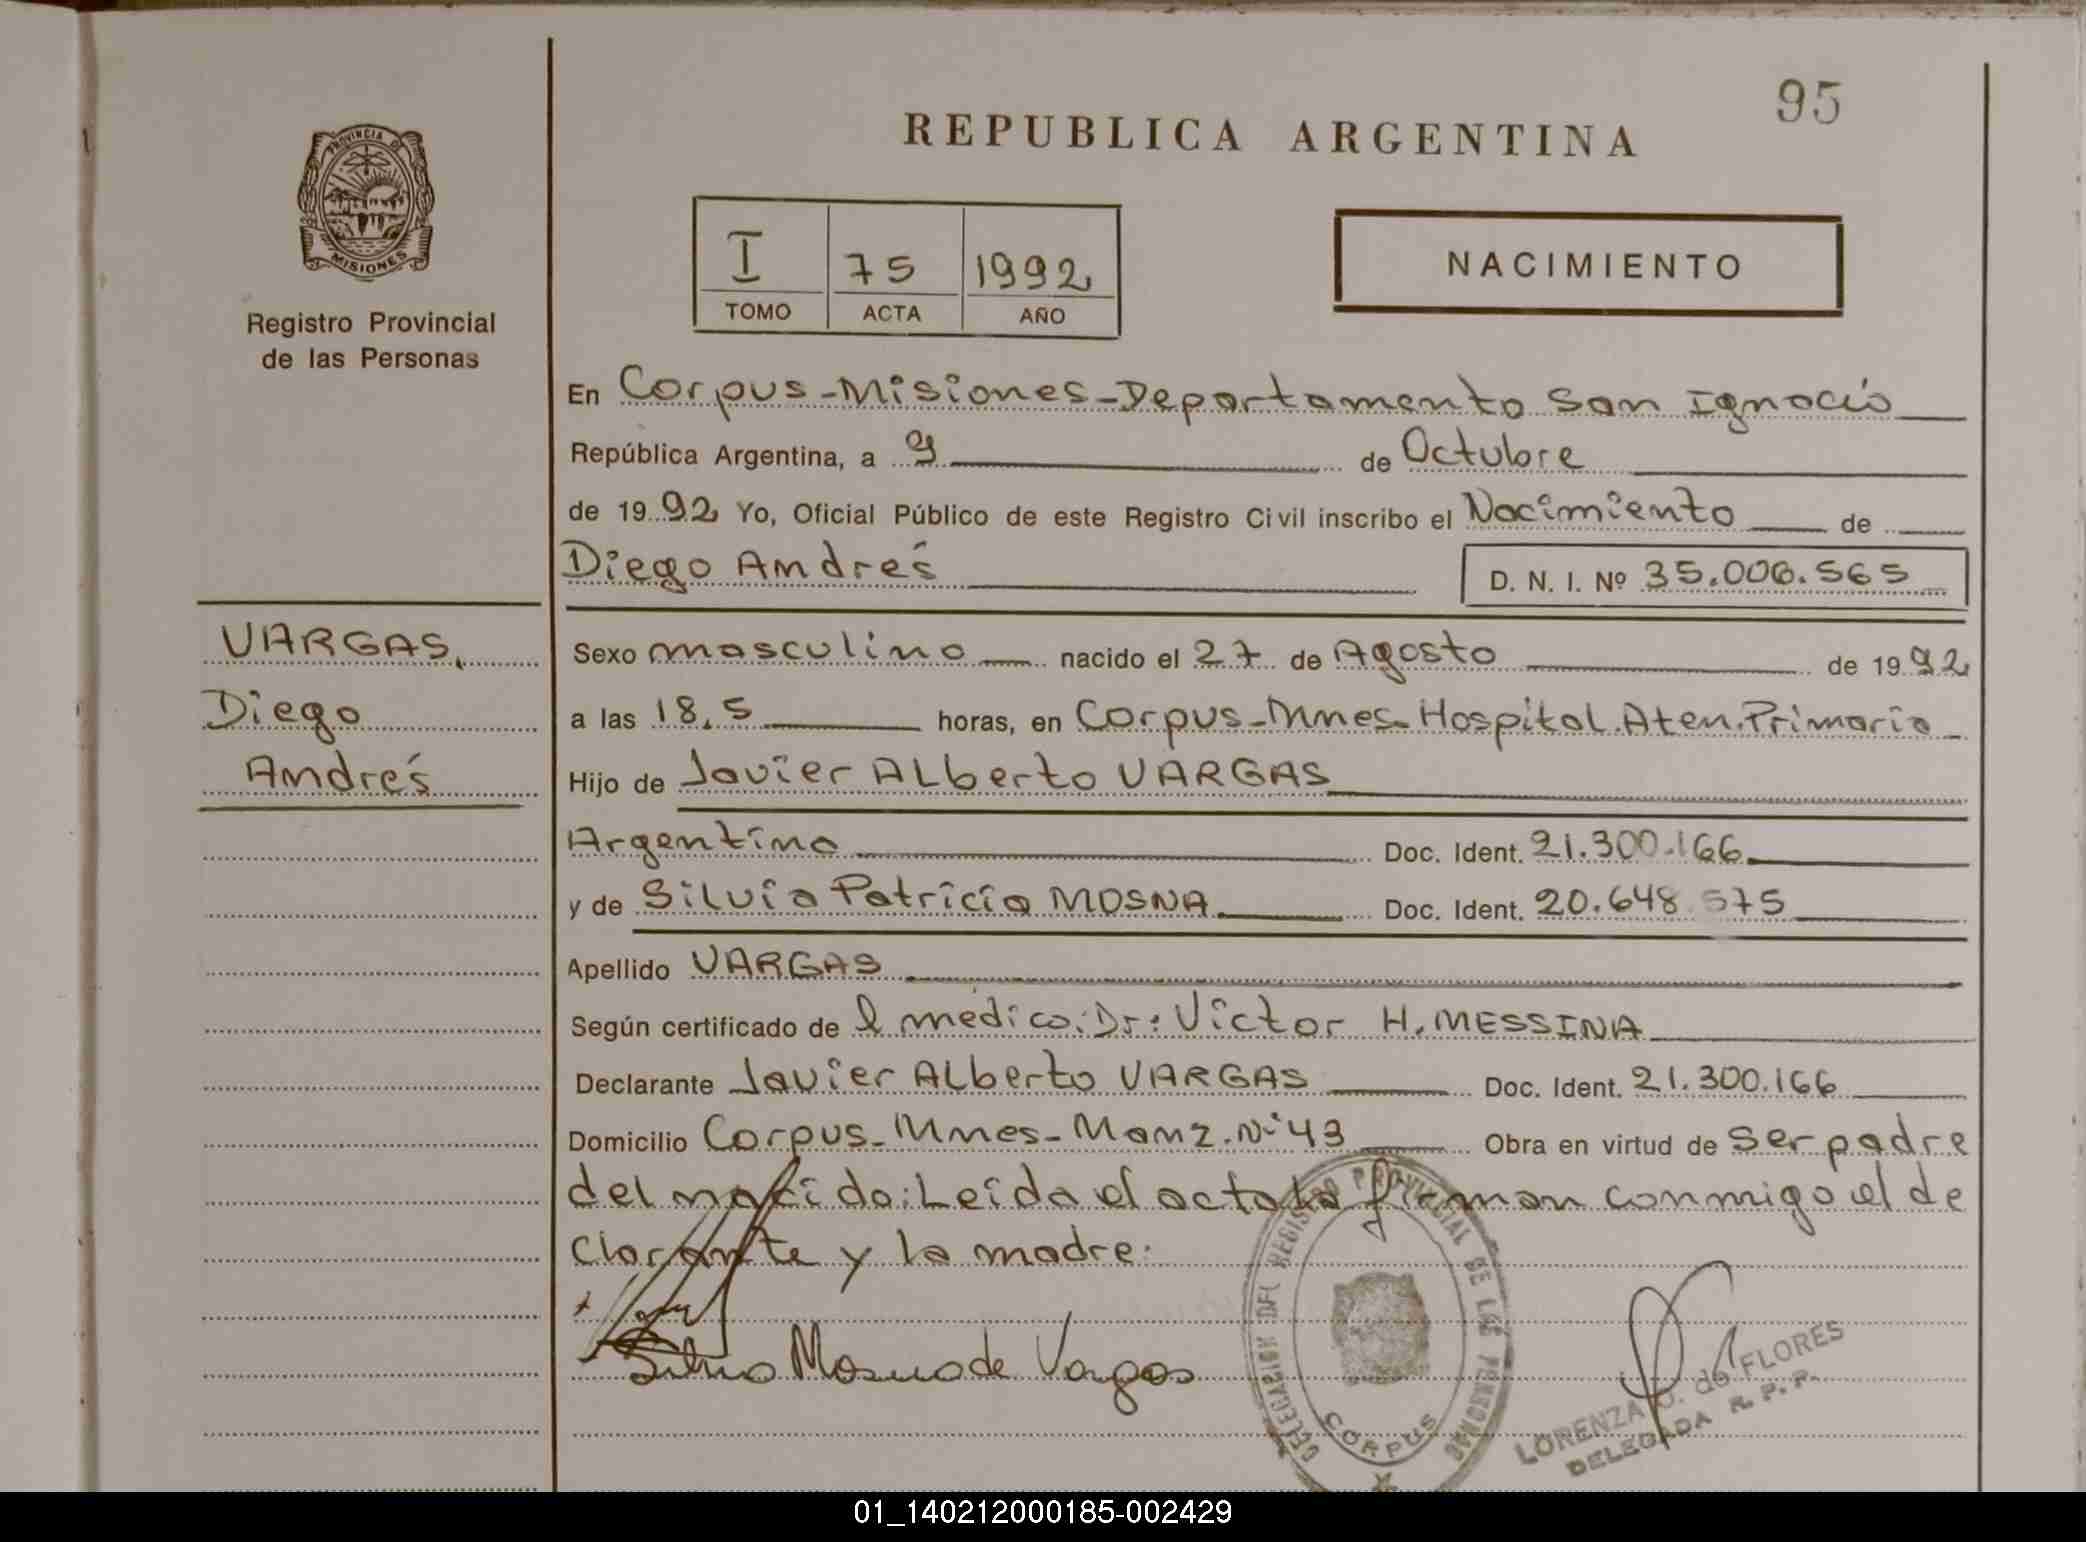 95
REPUBLICA ARGENTINA
PROVINCIA DE
MISIONES
Registro Provincial
de las Personas
I 75 1992
TOMO ACTA AÑO
NACIMIENTO
En Corpus-Misiones-Departamento San Ignacio
República Argentina, a 9 de Octubre
de 1992 Yo, Oficial Público de este Registro Civil inscribo el Nacimiento de
Diego Andrés D. N. I. Nº 35.006.565
VARGAS,
Diego
Andrés
Sexo masculino nacido el 27 de Agosto de 1992
a las 18,5 horas, en Corpus-Mnes-Hospital.Aten.Primaria
Hijo de Javier Alberto VARGAS
Argentino Doc. Ident. 21.300.166
y de Silvia Patricia MOSNA Doc. Ident. 20.648.575
Apellido VARGAS
Según certificado de l médico:Dr: Victor H. MESSINA
Declarante Javier Alberto VARGAS Doc. Ident. 21.300.166
Domicilio Corpus-Mnes-Manz.Nº43 Obra en virtud de ser padre
del nacido:Leida el acta la firman conmigo el de
clarante y la madre.
Silvia Mosna de Vargas
DELEGACION DEL REGISTRO PROVINCIAL DE LAS PERSONAS
CORPUS
LORENZA de FLORES
DELEGADA R. P. P.
01_140212000185-002429